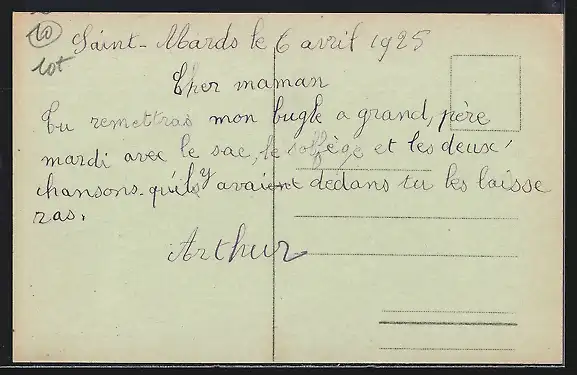 10
lot
Saint-Mards le 6 avril 1925
Cher maman
Tu remettras mon bugle a grand, père
mardi avec le sac, le solfège et les deux
chansons qu'ils y avaient dedans tu les laisse
ras.
Arthur